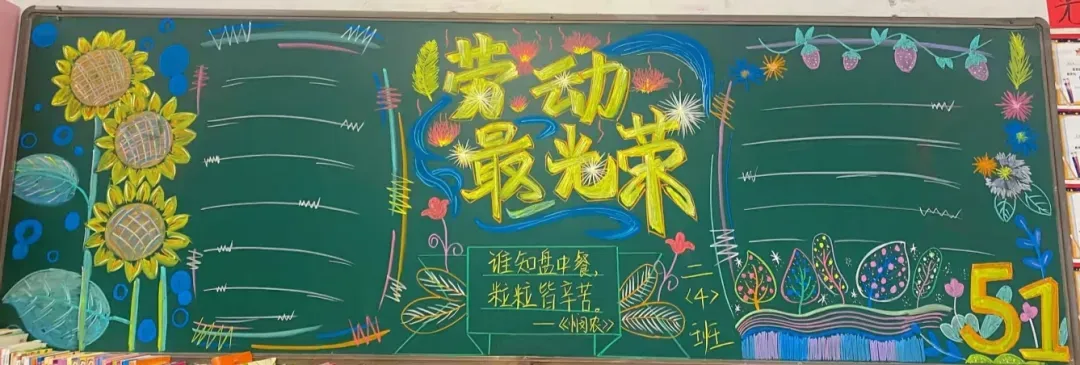 劳动
最光荣
谁知盘中餐,
粒粒皆辛苦。
——《悯农》
二
<4>
班
51